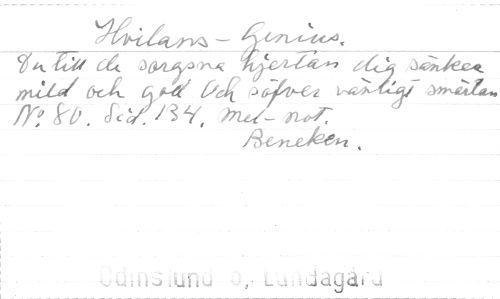 Hvilans - Genius.
Du till de sorgsna hjertan dig sänker
mild och god Och söfver vänligt smärtan
No 80. Sid. 134. mel - not.
Beneken.
Odinslund o, Lundagård